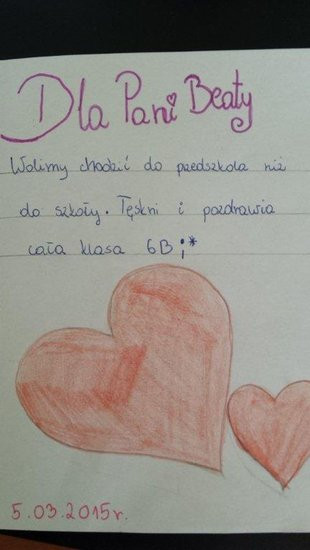 Dla Pani Beaty
Wolimy chodzić do przedszkola niż
do szkoły. Tęskni i pozdrawia
cała klasa 6B ;*
5.03.2015r.